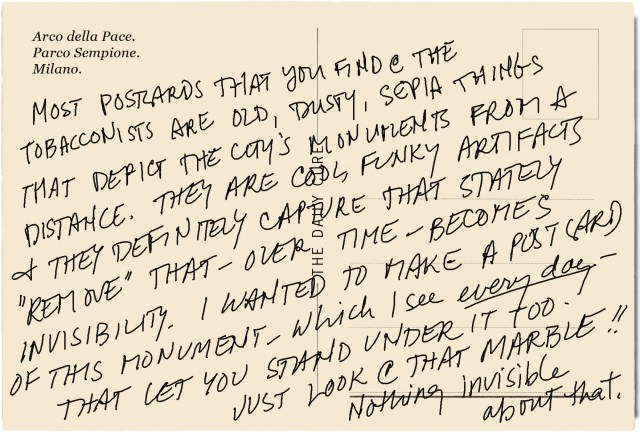 Arco della Pace.
Parco Sempione.
Milano.
MOST POSTCARDS THAT YOU FIND @ THE
TOBACCONISTS ARE OLD, DUSTY, SEPIA THINGS
THAT DEPICT THE CITY'S MONUMENTS FROM A
DISTANCE. THEY ARE COOL, FUNKY ARTIFACTS
& THEY DEFINITELY CAPTURE THAT STATELY
"REMOVE" THAT - OVER TIME - BECOMES
INVISIBILITY. I WANTED TO MAKE A POSTCARD
OF THIS MONUMENT - which I see every day -
THAT LET YOU STAND UNDER IT TOO.
JUST LOOK @ THAT MARBLE!!
Nothing invisible
about that.
THE DAILY CURE